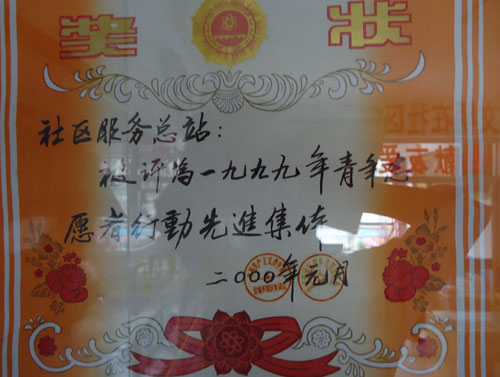 奖 状
社区服务总站：
被评为一九九九年青年志
愿者行動先進集体
二〇〇〇年元月